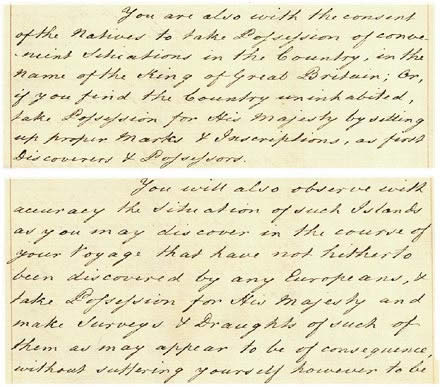 You are also with the consent
of the Natives to take Possession of conve
nient Situations in the Country, in the
Name of the King of Great Britain; Or,
if you find the Country uninhabited,
take Possession for His Majesty by setting
up proper Marks & Inscriptions, as first
Discoverers & Possessors.
You will also observe with
accuracy the Situation of such Islands
as you may discover in the course of
your Voyage that have not hitherto
been discovered by any Europeans, &
take Possession for His Majesty and
make Surveys & Draughts of such of
them as may appear to be of consequence,
without suffering yourself however to be